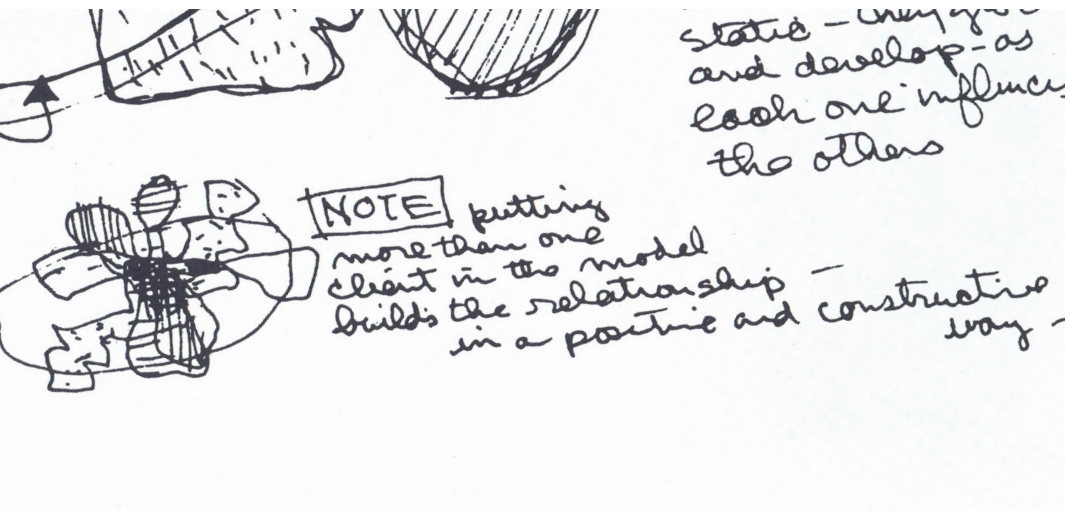 static - they
and develop - as
each one influences
the others
NOTE putting
more than one
client in the model
builds the relationship -
in a positive and constructive
way -